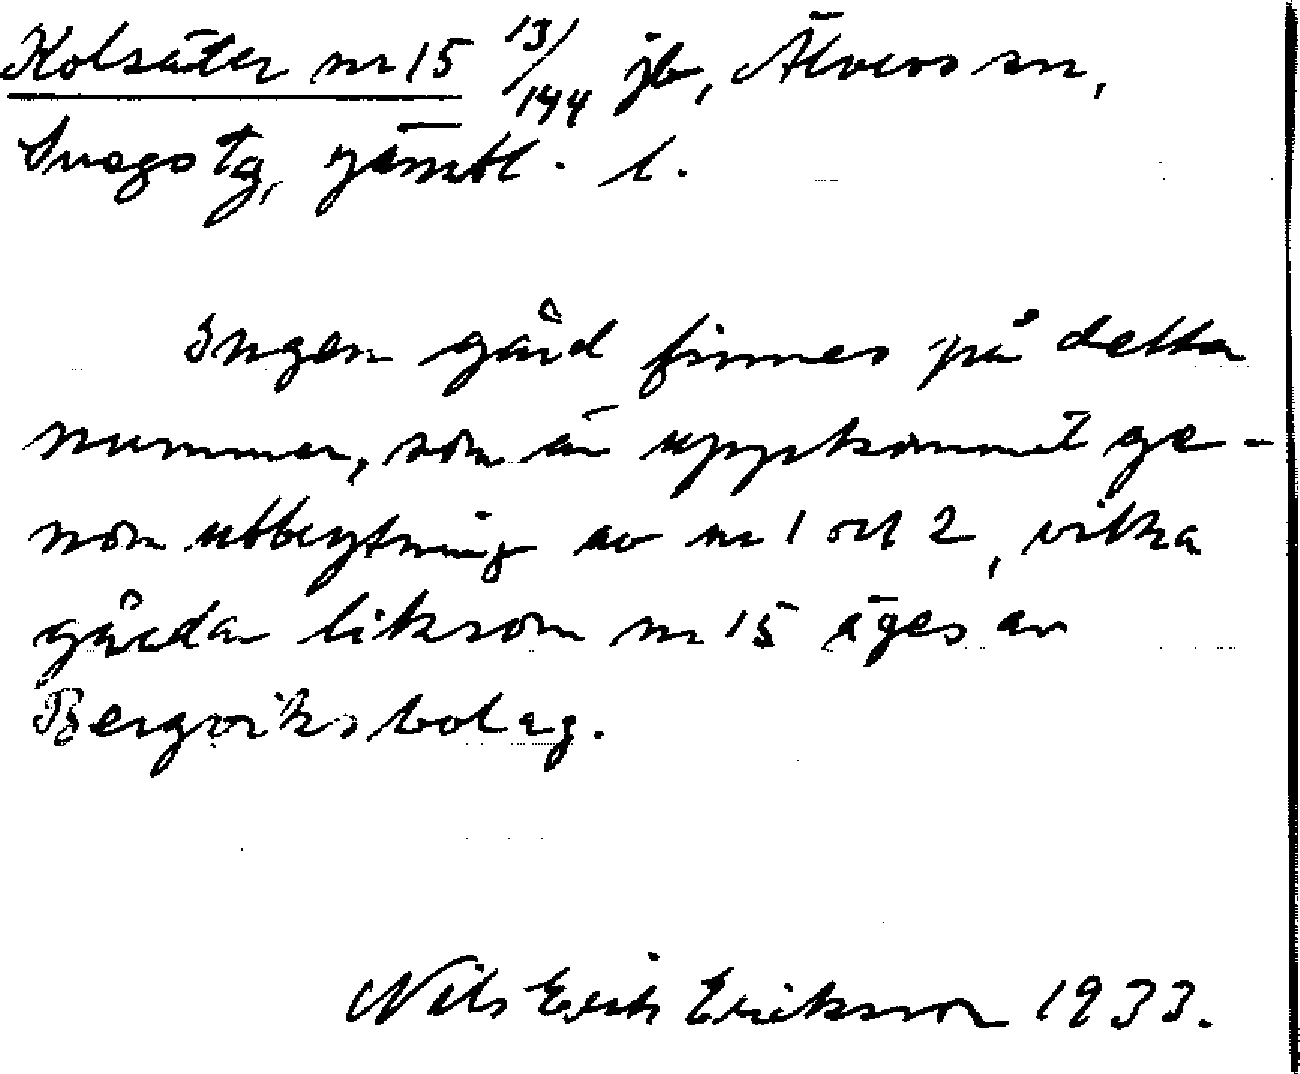 Kolsäter nr 15 13/144 jb, Älvros sn,
Svegs tg, Jämtl. l.
Ingen gård finnes på detta
nummer, som är uppkommet ge-
nom utbrytning av nr 1 och 2, vilka
gårdar liksom nr 15 äges av
Bergviks bolag.
Nils Erik Eriksson 1933.